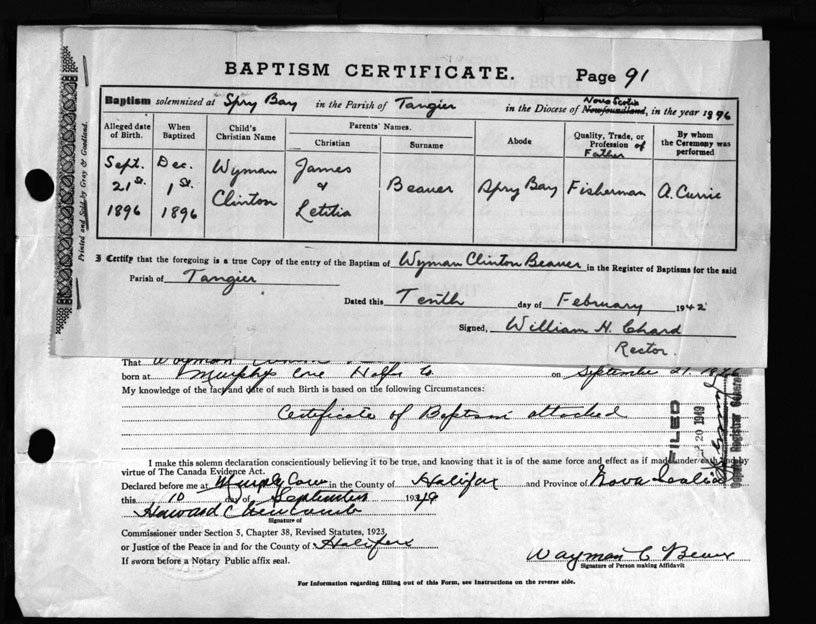 BAPTISM CERTIFICATE. Page 91
Baptism solemnized at Spry Bay in the Parish of Tangier in the Diocese of Newfoundland, Nova Scotia in the year 1896
Alleged date of Birth. When Baptized Child's Christian Name Parents' Names. Christian Surname Abode Quality, Trade, or Profession of Father By whom the Ceremony was performed
Sept. 21st. 1896 Dec. 1st. 1896 Wyman Clinton James & Letitia Beaver Spry Bay Fisherman A. Currie
Printed and Sold by Gray & Goodland.
I Certify that the foregoing is a true Copy of the entry of the Baptism of Wyman Clinton Beaver in the Register of Baptisms for the said
Parish of Tangier
Dated this Tenth day of February 1942
Signed, William H. Chard
Rector.
That
born at Murphys Cove Hafx Co on September 21. 1896
My knowledge of the fact and date of such Birth is based on the following Circumstances:
Certificate of Baptism attached
FILED 20 1949
I make this solemn declaration conscientiously believing it to be true, and knowing that it is of the same force and effect as if made under oath by
virtue of The Canada Evidence Act.
Declared before me at Murphy Cove in the County of Halifax and Province of Nova Scotia
this 10 day of September 1949
Howard
Signature of
Commissioner under Section 5, Chapter 38, Revised Statutes, 1923,
or Justice of the Peace in and for the County of Halifax
If sworn before a Notary Public affix seal.
Wayman C Beaver
Signature of Person making Affidavit
For Information regarding filling out of this Form, see Instructions on the reverse side.